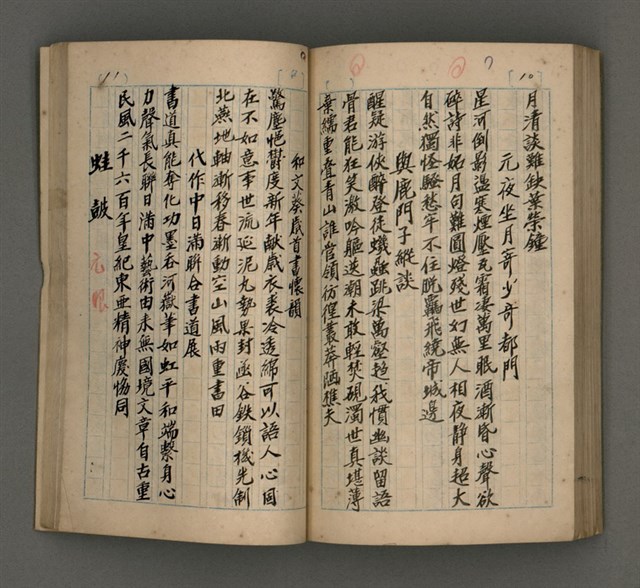 10
月清談難缺業榮鐘
元夜坐月寄少奇都門
星河倒影過寒煙壓瓦霜淒萬里眠酒漸昏心聲欲
碎詩非妬月句難圓燈殘世幻無人相夜靜身超大
自然獨怪騷愁牢不住晚飛繞帝城邊
與鹿門子縱談
醒疑游俠醉登徒蟻蝨跳梁萬壑趨我慣幽談留語
骨君能狂笑激吟軀送潮未敢輕焚硯濁世真堪薄
棄繻重叠青山誰管領彷徨叢莽陋樵夫
和文葵歲首書懷韻
驚塵悒鬱度新年獻歲衣裘冷透綿可以語人心因
在不如意事世流巡泥丸勢果封函谷鉄鎖機先制
北燕地軸漸移春漸動空山風雨重書田
代作中日滿聯合書道展
書道真能奪化功墨吞河嶽筆如虹平和端繫身心
力聲氣長聯日滿中藝術由來無國境文章自古重
民風二千六百年皇紀東亜精神慶協同
蛙鼓
11